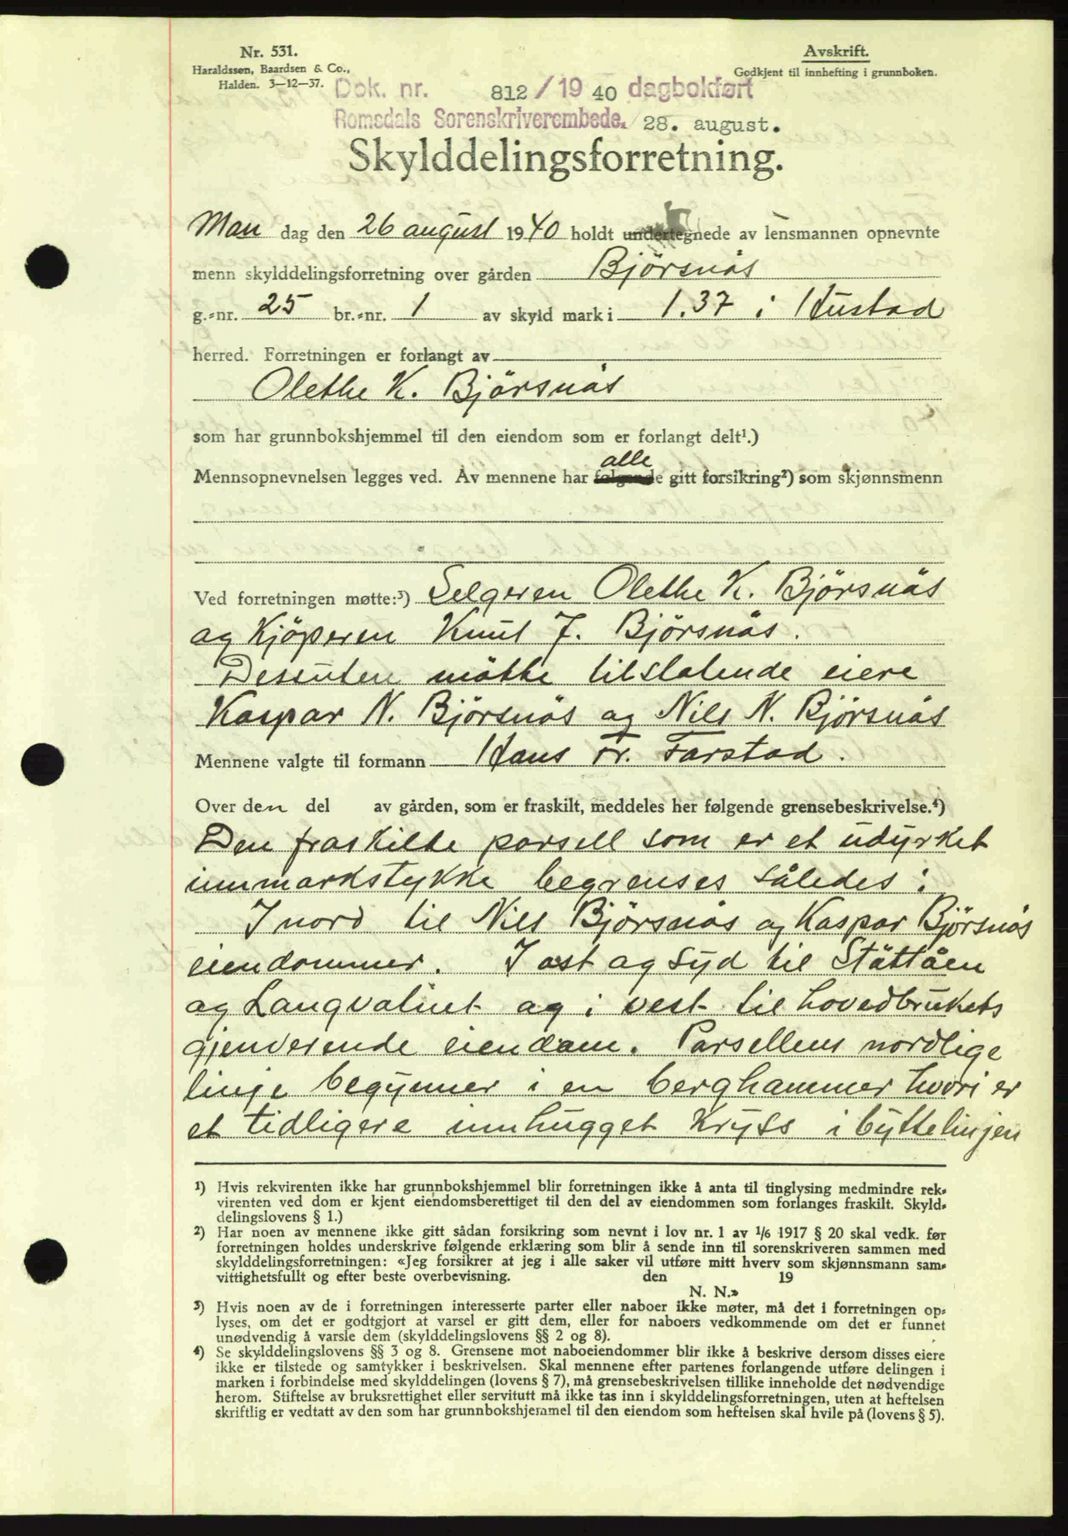 Nr. 531.
Haraldssen, Baardsen & Co.,
Halden. 3-12-37.
Avskrift.
Godkjent til innhefting i grunnboken.
Dok. nr. 812/1940 dagbokført
Romsdals Sorenskriverembede. 28. august.
Skylddelingsforretning.
Man dag den 26 august 1940 holdt undertegnede av lensmannen opnevnte
menn skylddelingsforretning over gården Björsnås
g.-nr. 25 br.-nr. 1 av skyld mark i 1.37 i Hustad
herred. Forretningen er forlangt av
Olethe K. Björsnås
som har grunnbokshjemmel til den eiendom som er forlangt delt¹.)
alle
Mennsopnevnelsen legges ved. Av mennene har følgende gitt forsikring²) som skjønnsmenn
Ved forretningen møtte:³) Selgeren Olethe K. Björsnås
og Kjöperen Knut J. Björsnås.
Dessuten mötte tilstötende eiere
Kaspar N. Björsnås og Nils N. Björsnås
Mennene valgte til formann Hans Fr. Farstad.
Over den del av gården, som er fraskilt, meddeles her følgende grensebeskrivelse.⁴)
Den fraskilte parsell som er et udyrket
innmarkstykke begrenses således:
I nord til Nils Björsnås og Kaspar Björsnås
eiendommer. I ost og syd til Stöttåen
og Langvatnet og i vest til hovedbrukets
gjenverende eiendom. Parsellens nordlige
linje begynner i en berghammer hvori er
et tidligere innhugget Kryss i byttelinjen
¹) Hvis rekvirenten ikke har grunnbokshjemmel blir forretningen ikke å anta til tinglysing medmindre rek-
virenten ved dom er kjent eiendomsberettiget til den del av eiendommen som forlanges fraskilt. Skyld-
delingslovens § 1.)
²) Har noen av mennene ikke gitt sådan forsikring som nevnt i lov nr. 1 av 1/6 1917 § 20 skal vedk. før
forretningen holdes underskrive følgende erklæring som blir å sende inn til sorenskriveren sammen med
skylddelingsforretningen: «Jeg forsikrer at jeg i alle saker vil utføre mitt hverv som skjønnsmann sam-
vittighetsfullt og efter beste overbevisning. den 19
N. N.»
³) Hvis noen av de i forretningen interesserte parter eller naboer ikke møter, må det i forretningen op-
lyses, om det er godtgjort at varsel er gitt dem, eller for naboers vedkommende om det er funnet
unødvendig å varsle dem (skylddelingslovens §§ 2 og 8).
⁴) Se skylddelingslovens §§ 3 og 8. Grensene mot naboeiendommer blir ikke å beskrive dersom disses eiere
ikke er tilstede og samtykker i beskrivelsen. Skal mennene efter partenes forlangende utføre delingen i
marken i forbindelse med skylddelingen (lovens § 7), må grensebeskrivelsen tillike inneholde det nødvendige
herom. Stiftelse av bruksrettighet eller servitutt må ikke tas inn i skylddelingsforretningen, uten at heftelsen
skriftlig er vedtatt av den som har grunnbokshjemmel til den eiendom som heftelsen skal hvile på (lovens § 5).